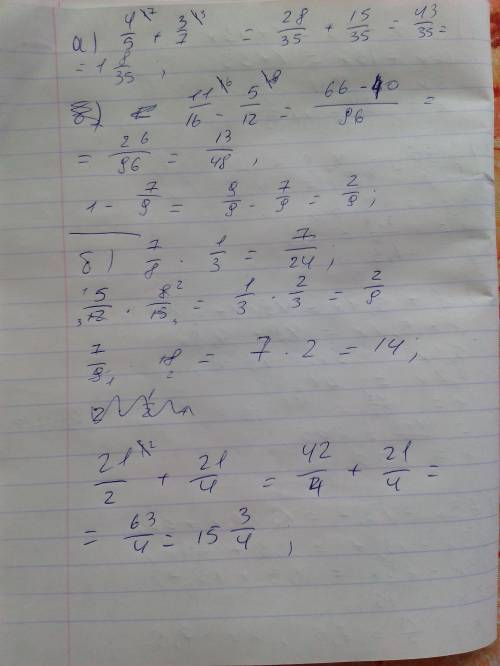 а) 4/5 \7 + 3/7 \5 = 28/35 + 15/35 = 43/35 =
= 1 8/35 ;
11/16 \6 - 5/12 \8 = (66 - 40)/96 =
= 26/96 = 13/48 ,
1 - 7/9 = 9/9 - 7/9 = 2/9 ;
б) 7/8 · 1/3 = 7/24 ;
5/12 · 8/15 = 1/3 · 2/3 = 2/9
7/9 · 18 = 7 · 2 = 14 ;
21/2 \2 + 21/4 = 42/4 + 21/4 =
= 63/4 = 15 3/4 ;